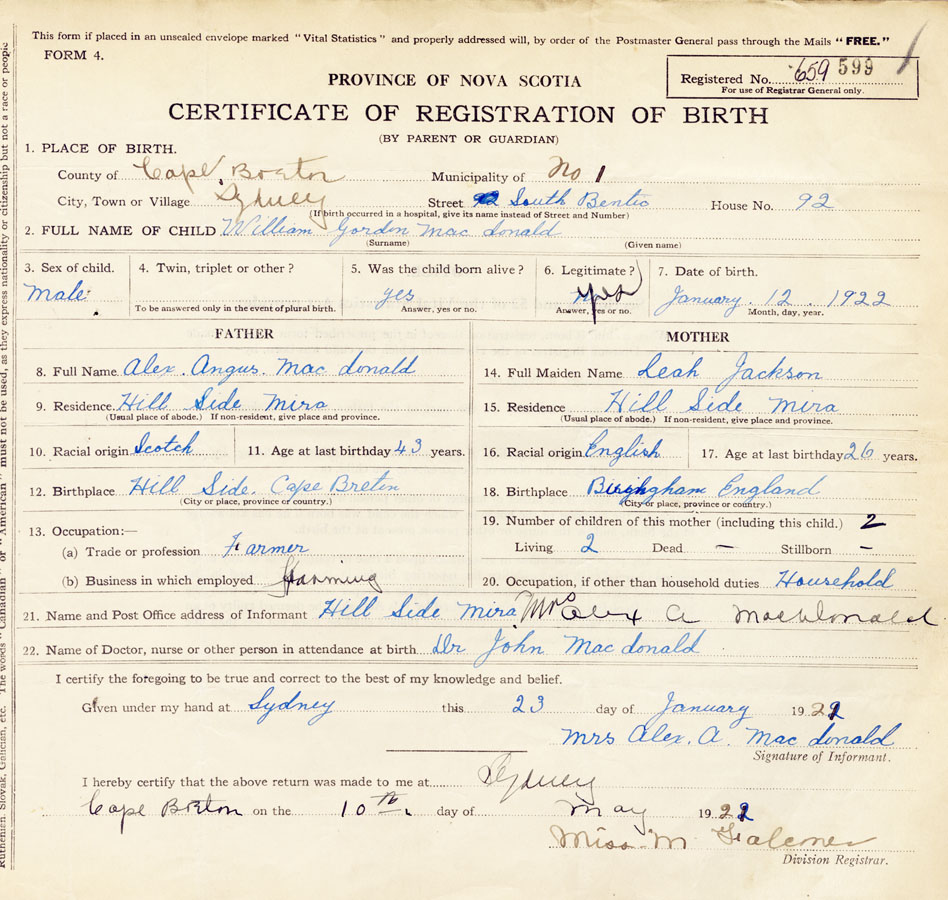 This form if placed in an unsealed envelope marked "Vital Statistics" and properly addressed will, by order of the Postmaster General pass through the Mails "FREE."
FORM 4.
Registered No. 659 599
For use of Registrar General only.
PROVINCE OF NOVA SCOTIA
CERTIFICATE OF REGISTRATION OF BIRTH
(BY PARENT OR GUARDIAN)
1. PLACE OF BIRTH.
County of Cape Breton Municipality of No 1
City, Town or Village Sydney Street 92 South Bentic House No. 92
(If birth occurred in a hospital, give its name instead of Street and Number)
2. FULL NAME OF CHILD William Gordon Mac donald
(Surname) (Given name)
3. Sex of child. 4. Twin, triplet or other? 5. Was the child born alive? 6. Legitimate? 7. Date of birth.
Male yes yes January. 12. 1922
To be answered only in the event of plural birth. Answer, yes or no. Answer, yes or no. Month, day, year.
FATHER MOTHER
8. Full Name Alex. Angus. Mac donald 14. Full Maiden Name Leah Jackson
9. Residence. Hill Side Mira 15. Residence Hill Side Mira
(Usual place of abode.) If non-resident, give place and province. (Usual place of abode.) If non-resident, give place and province.
10. Racial origin Scotch 11. Age at last birthday 43 years. 16. Racial origin English 17. Age at last birthday 26 years.
12. Birthplace Hill Side. Cape Breton 18. Birthplace England
(City or place, province or country.) (City or place, province or country.)
13. Occupation:— 19. Number of children of this mother (including this child.) 2
(a) Trade or profession Farmer Living 2 Dead — Stillborn —
(b) Business in which employed Farming 20. Occupation, if other than household duties Household
21. Name and Post Office address of Informant Hill Side Mira Mrs Alex A MacDonald
22. Name of Doctor, nurse or other person in attendance at birth Dr John Mac donald
I certify the foregoing to be true and correct to the best of my knowledge and belief.
Given under my hand at Sydney this 23 day of January 1922
Mrs Alex. A. Mac donald
Signature of Informant.
I hereby certify that the above return was made to me at Sydney
Cape Breton on the 10th day of May 1922
Miss M
Division Registrar.
Ruthenian, Slovak, Galician, etc. The words "Canadian" or "American" must not be used, as they express nationality or citizenship but not a race or people